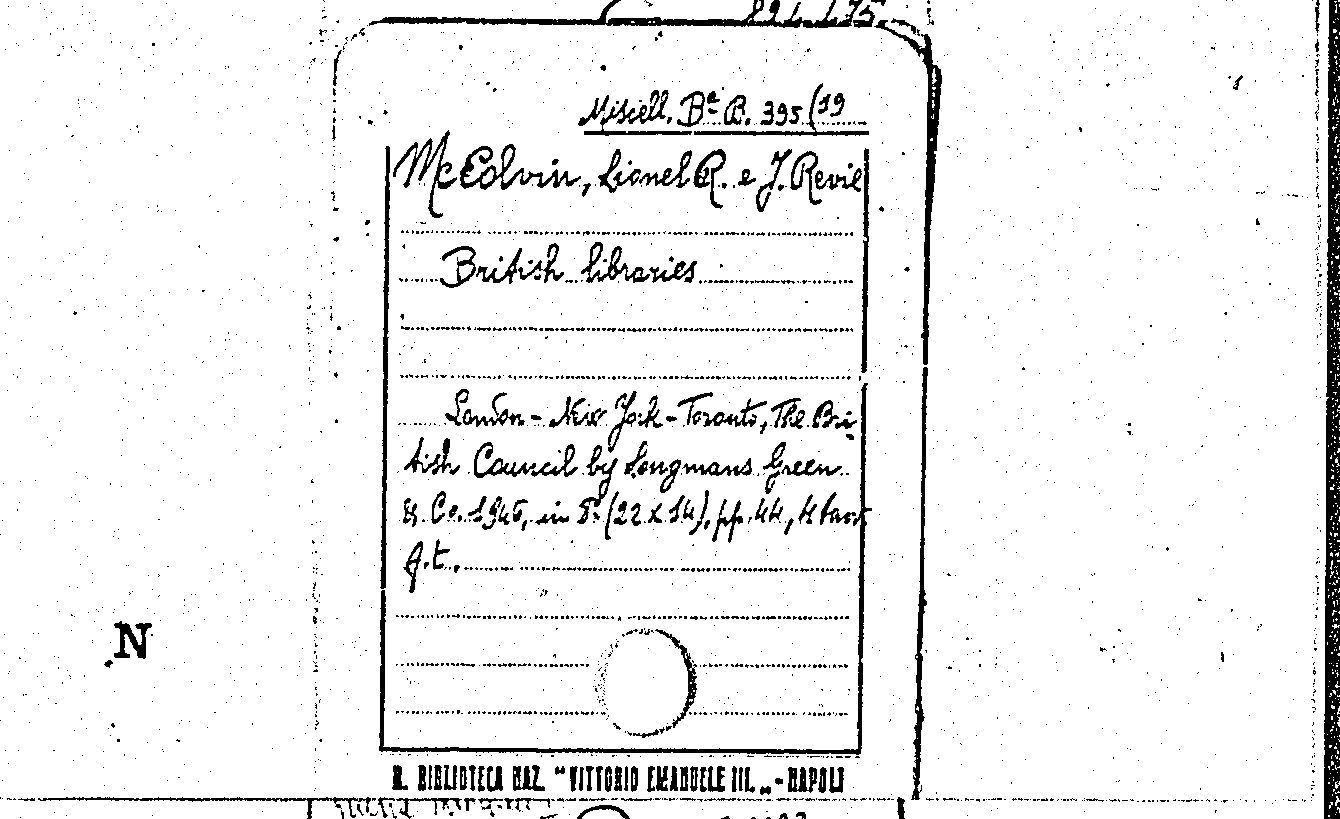 Miscell. Bª B. 395(19
McColvin, Lionel R. e J. Revie
British libraries
London - New York - Toronto, The Bri
tish Council by Longmans Green
& Co. 1946, in 8° (22 x 14), pp. 44, 4 tavv
f.t.
N
R. BIBLIOTECA NAZ. "VITTORIO EMANUELE III. „ - NAPOLI